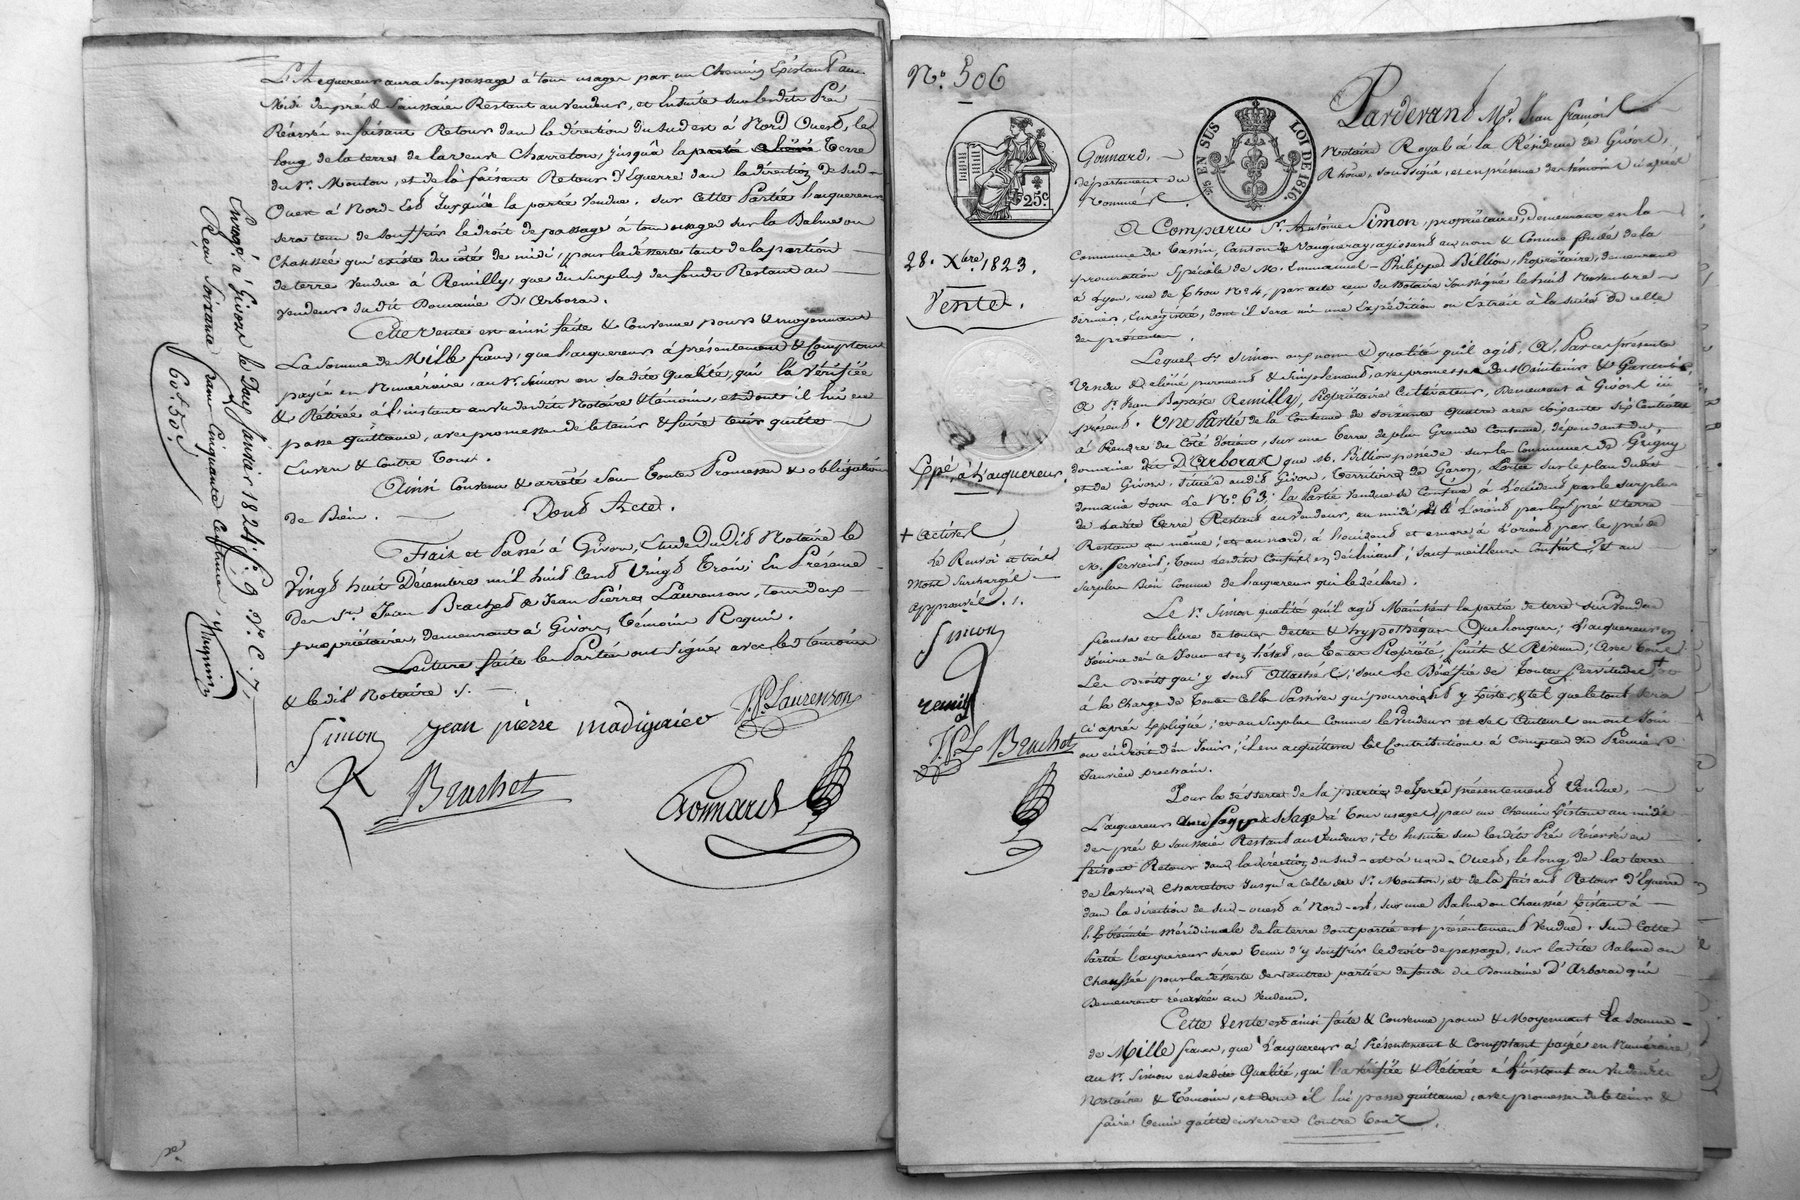 L'Acquereur aura son passage à tous usages par un Chemin Existant au
Midi du pré & Saussaie Restant au Vendeur, et Ensuite sur ledit Pré
Réservé en faisant Retour dans la direction du Sud est à Nord Ouest, le
long de la terre de la veuve Charreton, jusqu'à la Terre
du Sr. Mouton, et de là faisant Retour d'Equerre dans la direction de Sud-
Ouest à Nord-Est Jusqu'à la partie Vendue. sur Cette Partie l'acquereur
sera tenu de souffrir le droit de passage à tous usages sur la Balme ou
Chaussée qui existe du côté de midi, pour la désserte tant de la portion
de terre Vendue à Remilly, que du Surplus du fonds Restant au
Vendeur du dit Domaine D'Arboras.
Cette vente est ainsi faite & Convenue pour & moyennant
La Somme de Mille francs, que l'acquereur a présentement & Comptant
payée en Numéraire, au Sr. Simon en sadite Qualité, qui l'a Vérifiée
& Retirée à l'instant au vu dudit Notaire & témoins, et dont il lui en
passe quittance, avec promesse de le tenir & faire tenir quitte
Envers & Contre Tous.
Ainsi Convenu & arrêté sous Toutes Promesses & obligations
de Biens. Dont Acte.
Fait et Passé à Givors, Etude dudit Notaire le
Vingt huit Décembre mil huit Cent Vingt Trois; En Présence
Des Srs. Jean Brachet & Jean Pierre Laurenson, tous deux
propriétaires, demeurant à Givors, Témoins Requis.
Lecture faite les Parties ont Signé avec les témoins
& ledit Notaire.
Simon jean pierre madignier J.P. Laurenson
Brachet Gonnard
Enreg.é à Givors le Janvier 1824. f.° 9 V.° C. 7.
Reçu Soixante francs Cinquante Centimes
60f. 50c.
N.° 506
25c.
EN SUS
LOI DE 1816.
28. Xbre. 1823.
Vente.
Expé. à l'acquereur.
+ actives
Le Renvoi et trois
Mots Surchargés
approuvés.
Simon
remilly
J.P.L Brachet
Pardevant Me. Jean François
Gonnard, Notaire Royal à la Résidence de Givors,
département du Rhône, soussigné, et en présence des témoins ci après
Nommés.
A Comparu Sr. Antoine Simon, propriétaire, demeurant en la
Commune de Tassin, Canton de Vaugneray, agissant au nom & Comme fondé de la
procuration Spéciale de M. Emmanuel-Philippe Billion, Propriétaire, demeurant
à Lyon, rue de Thou N.° 4, par acte reçu du Notaire Soussigné le huit Novembre
dernier, Enregistré, dont il sera mis une Expédition ou Extrait à la suite de celle
des présentes.
Lequel Sr. Simon aux noms & qualité qu'il agit. A, Par ces présentes
Vendu & cédé purement & Simplement, avec promesse de Maintenir & Garantir,
A Sr. Jean Baptiste Remilly, Propriétaire Cultivateur, Demeurant à Givors ici
présent. Une Partie de la Contenue de soixante quatre ares Cinquante six Centiares
à Prendre du Côté d'orient, sur une Terre de plus Grande Contenue, dépendant du
domaine dit D'Arboras que M. Billion possède sur les Communes de Grigny
et de Givors, située audit Givors, Territoire de Garon, Portée sur le plan dudit
domaine sous le N.° 63; la Partie Vendue se Confine à l'occident par le surplus
de ladite Terre Restant au Vendeur, au midi & à l'orient par les pré & terre
Restant au même; et au nord, à l'occident et encore à l'orient par le pré de
M. Servient; Tous lesdits Confins en déclinant; sauf meilleurs Confins, & au
surplus Bien Connue de l'acquereur qui le déclare.
Le Sr. Simon qualité qu'il agit Maintient la partie de terre sus Vendue
franche et libre de toutes dettes & hypothèques Quelconques; L'acquereur en
Jouira dès ce Jour et en l'état, en Toute Propriété, fruits & Revenus, avec tous
Les Droits qui y sont Attachés; sous le Bénéfice de Toutes Servitudes +
à la Charge de Toutes Celles Passives qui pourraient y Exister, & tel que le tout sera
ci après Expliqué; et au Surplus Comme le Vendeur et ses Auteurs en ont Joui
ou eu Droit d'en Jouir; il en acquittera les Contributions à Compter du Premier
Janvier prochain.
Pour la désserte de la partie de terre présentement Vendue,
L'acquereur aura son passage à Tous usages, par un Chemin Existant au midi
des pré & saussaie Restant au Vendeur; Et Ensuite sur ledit Pré Réservé en
faisant Retour dans la direction du Sud-est à nord-Ouest, le long de la terre
de la veuve Charreton Jusqu'à Celle du Sr. Mouton; et de là faisant Retour d'Equerre
dans la direction de Sud-ouest à Nord-est, sur une Balme ou Chaussée Existant à
l'Extrémité méridionale de la terre dont partie est présentement Vendue. Sur Cette
Partie l'acquereur sera Tenu d'y souffrir le droit de passage, sur ladite Balme ou
Chaussée pour la désserte des autres parties de fonds du Domaine D'Arboras qui
Demeurent réservées au Vendeur.
Cette Vente est ainsi faite & Convenue pour & Moyennant La somme
de Mille francs, que L'acquereur a Présentement & Comptant payée en Numéraire,
au Sr. Simon en sadite Qualité, qui l'a vérifiée & Retirée à l'instant au vu dudit
Notaire & Témoins, et dont il lui passe quittance, avec promesse de le tenir &
faire Tenir quitte envers et Contre Tous.